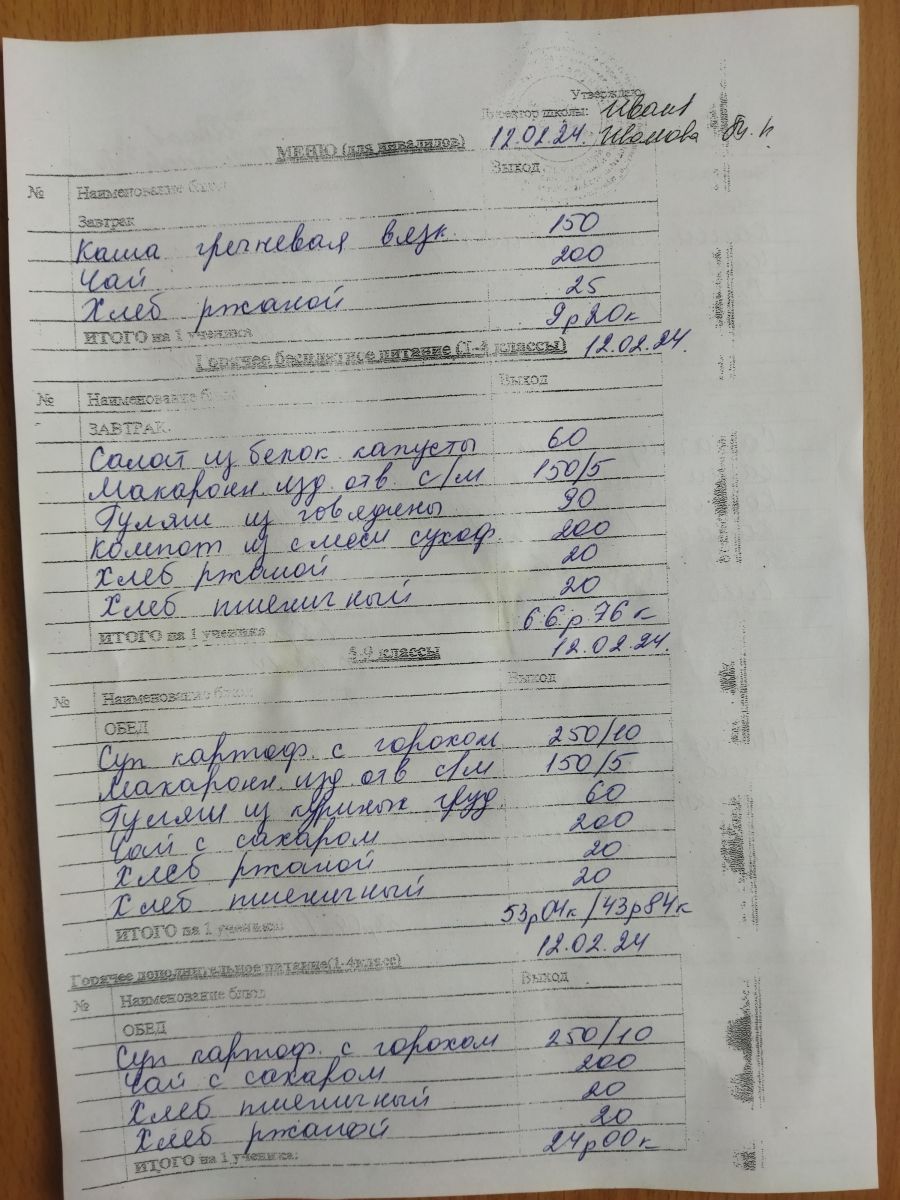 Утверждаю
Директор школы: Иван
12.02.24. Иванова
МЕНЮ (для инвалидов)
№ Наименование блюд Выход
Завтрак
Каша гречневая вязк. 150
Чай 200
Хлеб ржаной 25
ИТОГО на 1 ученика 9р20к
Горячее бесплатное питание (1-4 классы) 12.02.24.
№ Наименование блюд Выход
ЗАВТРАК.
Салат из белок. капусты 60
Макаронн. изд. отв. с/м 150/5
Гуляш из говядины 90
Компот из смеси сухоф. 200
Хлеб ржаной 20
Хлеб пшеничный 20
ИТОГО на 1 ученика 66р76к
5-9 классы 12.02.24.
№ Наименование блюд Выход
ОБЕД
Суп картоф. с горохом 250/10
Макаронн. изд. отв с/м 150/5
Гуляш из куриных груд. 60
Чай с сахаром 200
Хлеб ржаной 20
Хлеб пшеничный 20
ИТОГО на 1 ученика: 53р04к/43р84к
12.02.24
Горячее дополнительное питание(1-4класс)
№ Наименование блюд Выход
ОБЕД
Суп картоф. с горохом 250/10
Чай с сахаром 200
Хлеб пшеничный 20
Хлеб ржаной 20
ИТОГО на 1 ученика: 24р00к